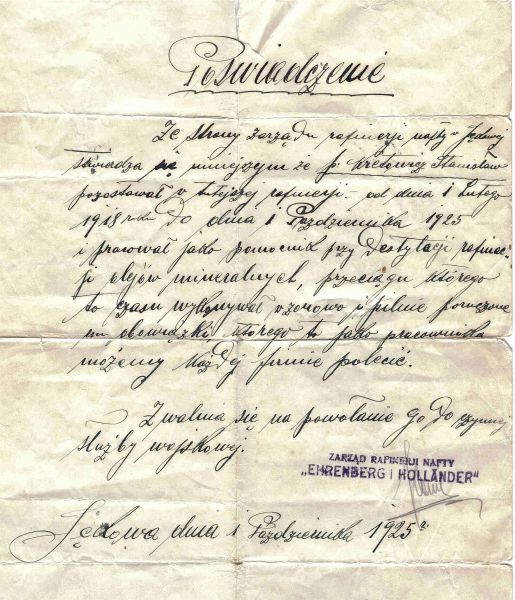 Poświadczenie
Ze strony zarządu rafinerji nafty w Sękowej
stwierdza się niniejszym że p. Kretowicz Stanisław
pozostawał w tutejszej rafinerji - od dnia 1 Lutego
1918 roku do dnia 1 Października 1925
i pracował jako pomocnik przy Destylacji rafinac-
ji olejów mineralnych, przeciągu którego
to czasu wykonywał wzorowo i pilnie poruczone
mu obowiązki, którego to jako pracownika
możemy każdej firmie polecić.
Zwalnia się na powołanie go do czynnej
służby wojskowej.
ZARZĄD RAFINERJI NAFTY
„EHRENBERG I HOLLÄNDER"
Sękowa dnia 1 Października 1925 r